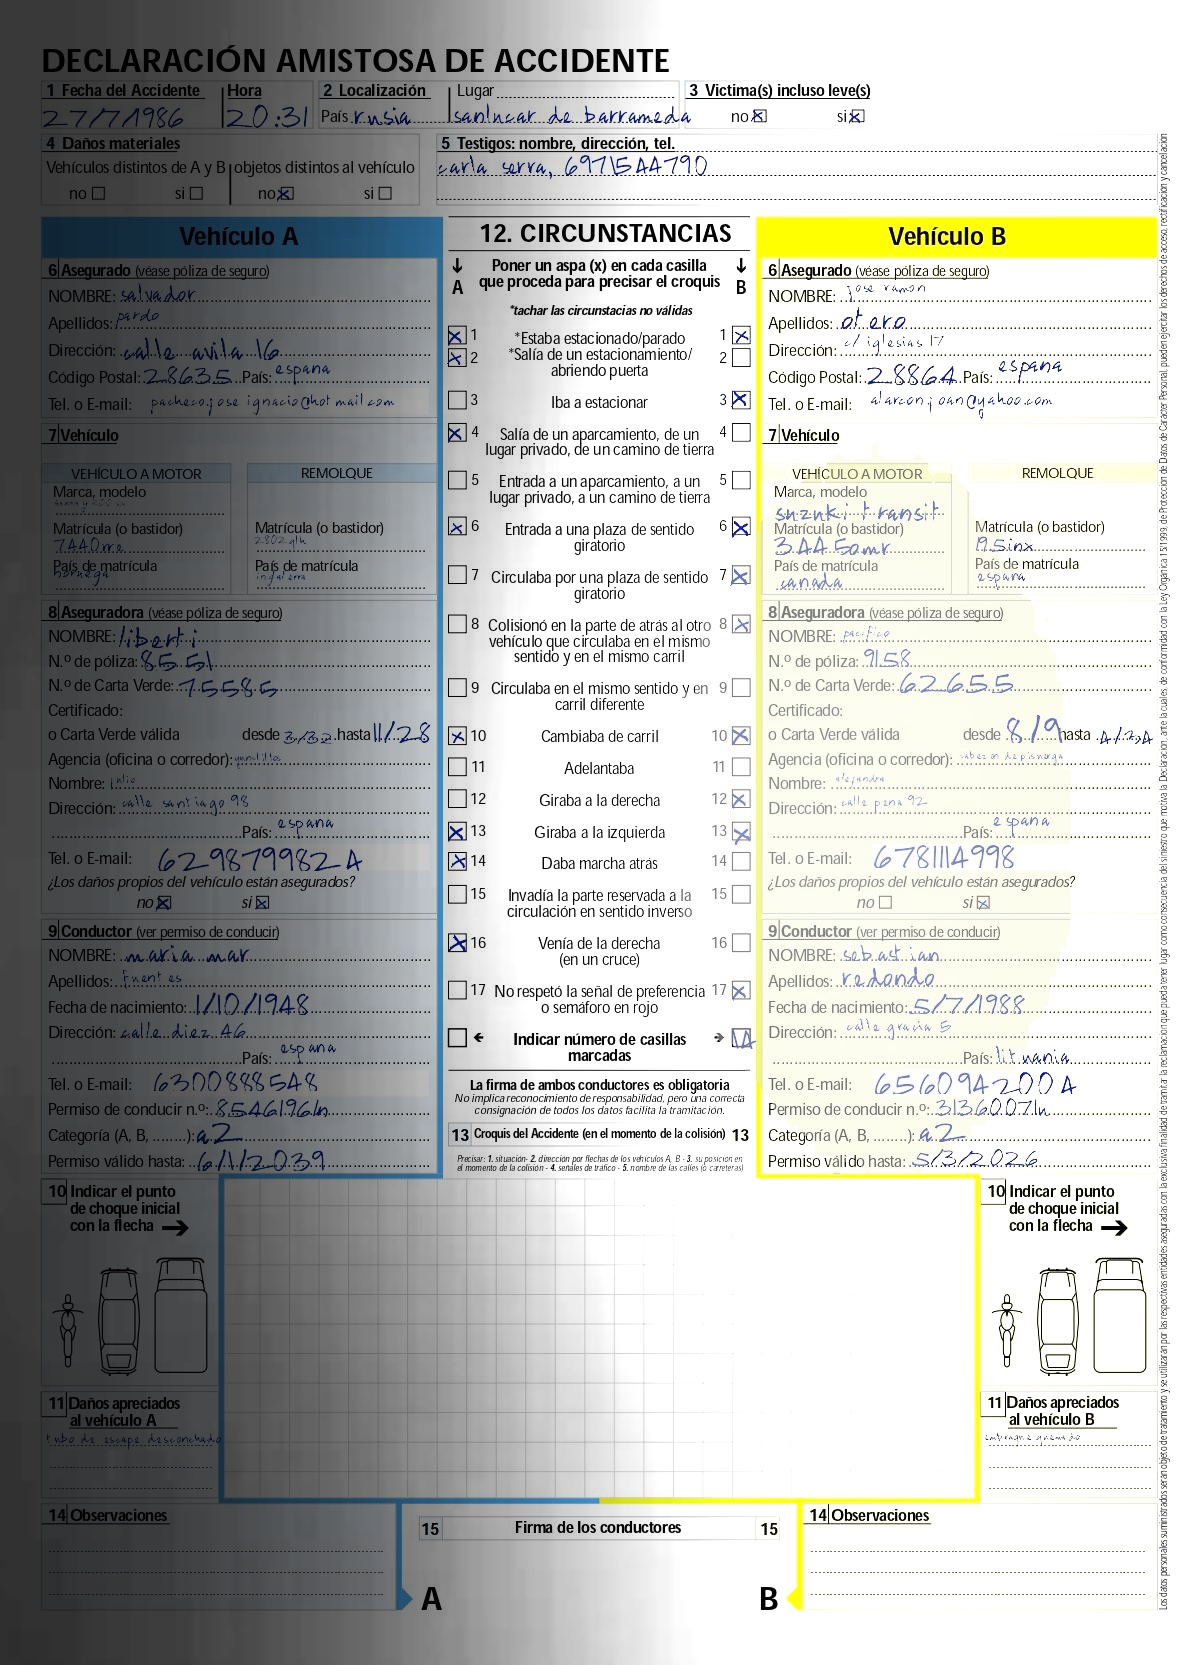 DECLARACIÓN AMISTOSA DE ACCIDENTE
1 Fecha del Accidente Hora 2 Localización Lugar 3 Victima(s) incluso leve(s)
27/7/1986 20:31 País rusia sanlucar de barrameda no si
4 Daños materiales 5 Testigos: nombre, dirección, tel.
Vehículos distintos de A y B objetos distintos al vehículo carla serra, 6971544790
no si no si
Vehículo A
6 Asegurado (véase póliza de seguro)
NOMBRE: salvador
Apellidos: pardo
Dirección: calle avila 16
Código Postal: 28635 País: espana
Tel. o E-mail: pacheco.jose ignacio@hotmail.com
7 Vehículo
VEHÍCULO A MOTOR REMOLQUE
Marca, modelo
Matrícula (o bastidor) Matrícula (o bastidor)
7440mre 2802glh
País de matrícula País de matrícula
noruega inglaterra
8 Aseguradora (véase póliza de seguro)
NOMBRE: liberti
N.º de póliza: 8551
N.º de Carta Verde: 75585
Certificado:
o Carta Verde válida desde 3/32 hasta 11/28
Agencia (oficina o corredor):
Nombre: julio
Dirección: calle santiago 98
País: espana
Tel. o E-mail: 6298799824
¿Los daños propios del vehículo están asegurados?
no si
9 Conductor (ver permiso de conducir)
NOMBRE: maria mar
Apellidos: fuentes
Fecha de nacimiento: 1/10/1948
Dirección: calle diez 46
País: espana
Tel. o E-mail: 6300888548
Permiso de conducir n.º: 8546196ln
Categoría (A, B, ........): a2
Permiso válido hasta: 6/1/2039
10 Indicar el punto
de choque inicial
con la flecha
11 Daños apreciados
al vehículo A
tubo de escape desconchado
14 Observaciones
12. CIRCUNSTANCIAS
Poner un aspa (x) en cada casilla
A que proceda para precisar el croquis B
*tachar las circunstacias no válidas
1 *Estaba estacionado/parado 1
2 *Salía de un estacionamiento/ 2
abriendo puerta
3 Iba a estacionar 3
4 Salía de un aparcamiento, de un 4
lugar privado, de un camino de tierra
5 Entrada a un aparcamiento, a un 5
lugar privado, a un camino de tierra
6 Entrada a una plaza de sentido 6
giratorio
7 Circulaba por una plaza de sentido 7
giratorio
8 Colisionó en la parte de atrás al otro 8
vehículo que circulaba en el mismo
sentido y en el mismo carril
9 Circulaba en el mismo sentido y en 9
carril diferente
10 Cambiaba de carril 10
11 Adelantaba 11
12 Giraba a la derecha 12
13 Giraba a la izquierda 13
14 Daba marcha atrás 14
15 Invadía la parte reservada a la 15
circulación en sentido inverso
16 Venía de la derecha 16
(en un cruce)
17 No respetó la señal de preferencia 17
o semáforo en rojo
Indicar número de casillas 14
marcadas
La firma de ambos conductores es obligatoria
No implica reconocimiento de responsabilidad, pero una correcta
consignación de todos los datos facilita la tramitación.
13 Croquis del Accidente (en el momento de la colisión) 13
Precisar: 1. situación- 2. dirección por flechas de los vehículos A, B - 3. su posición en
el momento de la colisión - 4. señales de tráfico - 5. nombre de las calles (o carreteras)
15 Firma de los conductores 15
A B
Vehículo B
6 Asegurado (véase póliza de seguro)
NOMBRE: jose ramon
Apellidos: otero
Dirección: c/ iglesias 17
Código Postal: 28864 País: espana
Tel. o E-mail: alarconjoan@yahoo.com
7 Vehículo
VEHÍCULO A MOTOR REMOLQUE
Marca, modelo
suzuki transit
Matrícula (o bastidor) Matrícula (o bastidor)
3445amr 195inx
País de matrícula País de matrícula
canada espana
8 Aseguradora (véase póliza de seguro)
NOMBRE: pacifico
N.º de póliza: 9158
N.º de Carta Verde: 62655
Certificado:
o Carta Verde válida desde 8/9 hasta 4/34
Agencia (oficina o corredor): cabezon de pisuerga
Nombre: alejandra
Dirección: calle pena 92
País: espana
Tel. o E-mail: 6781114998
¿Los daños propios del vehículo están asegurados?
no si
9 Conductor (ver permiso de conducir)
NOMBRE: sebastian
Apellidos: redondo
Fecha de nacimiento: 5/7/1988
Dirección: calle gracia 5
País: lituania
Tel. o E-mail: 6560942004
Permiso de conducir n.º: 3136007ln
Categoría (A, B, ........): a2
Permiso válido hasta: 5/3/2026
10 Indicar el punto
de choque inicial
con la flecha
11 Daños apreciados
al vehículo B
embrague quemado
14 Observaciones
Los datos personales suministrados seran objeto de tratamiento y se utilizaran por las respectivas entidades aseguradas con la exclusiva finalidad de tramitar la reclamación que pueda tener lugar como consecuencia del siniestro que motiva la Declaracion, ante la cuales, de conformidad con la Ley Organica 15/1999, de Proteccion de Datos de Caracter Personal, pueden ejercitar los derechos de acceso, rectificación y cancelación